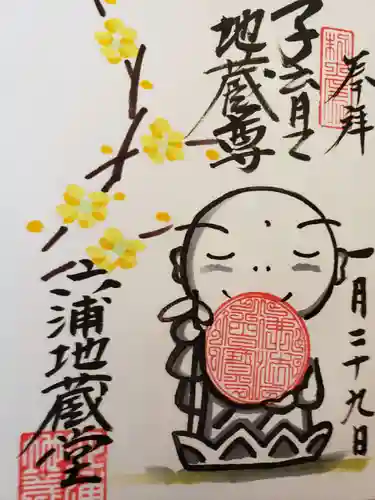 奉拝
子育て
地蔵尊
一月二十九日
佛法
僧寶
浦地蔵堂